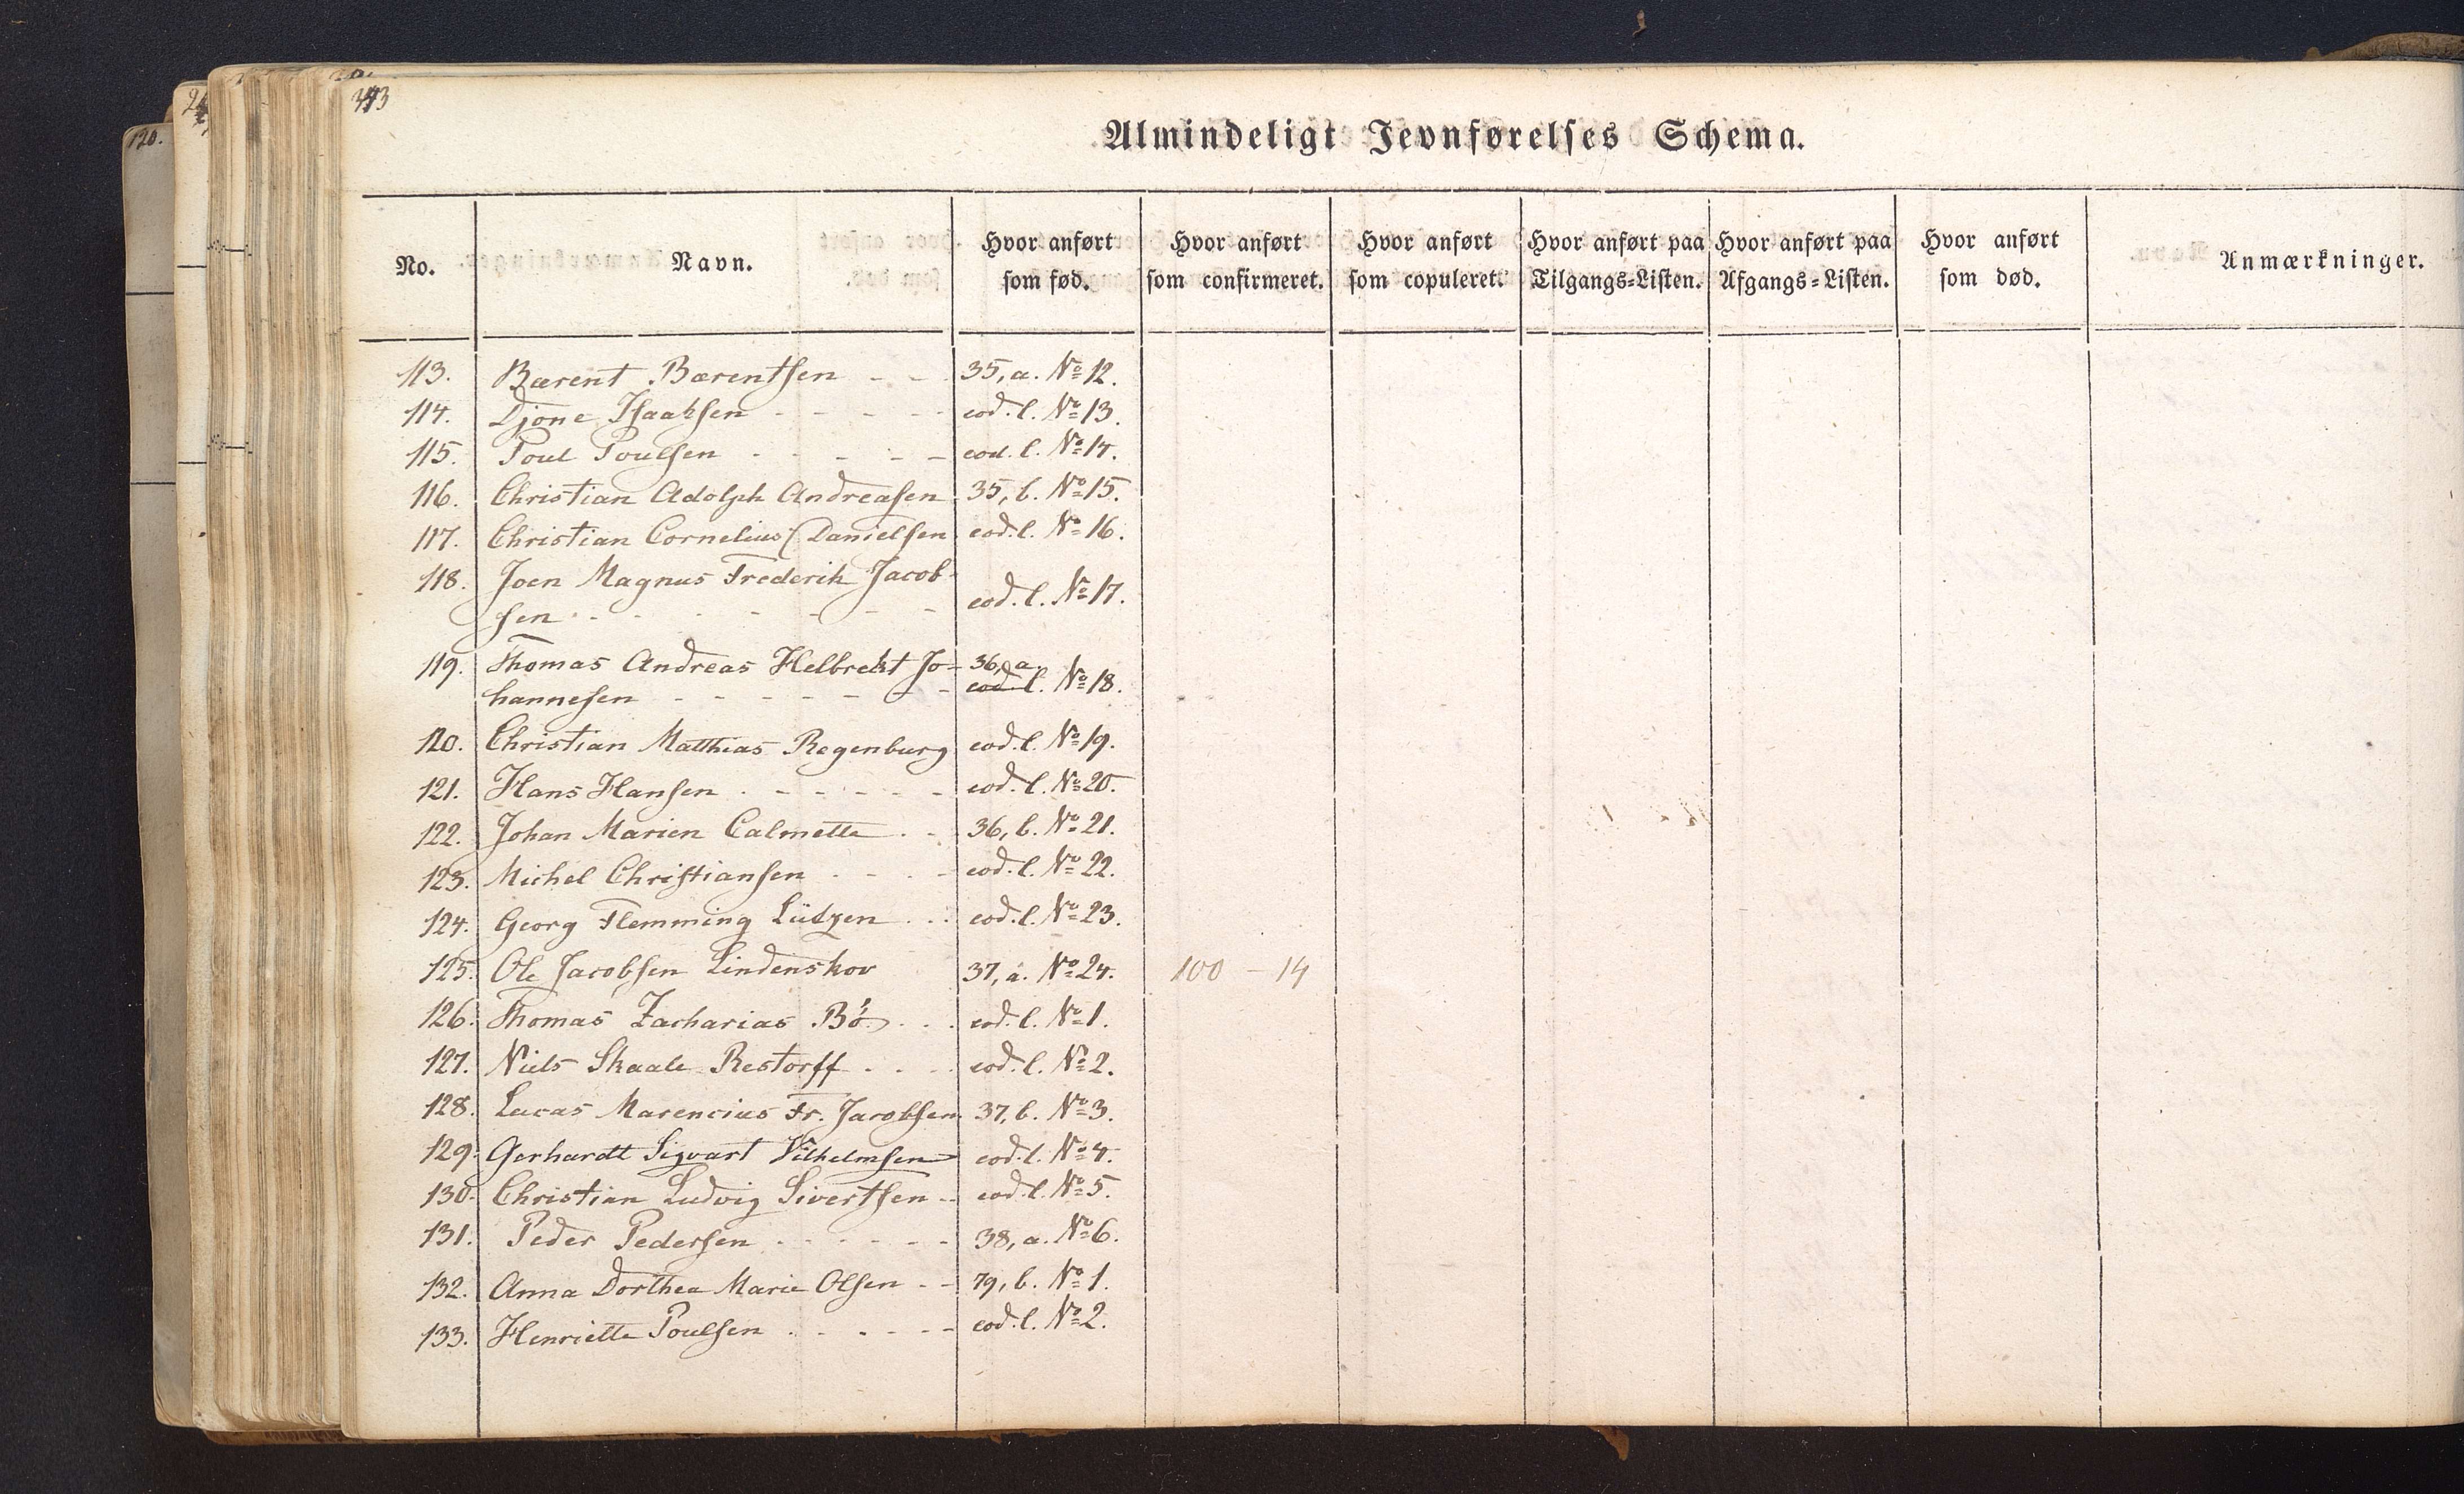 120.
Almindeligt Jevnførelses Schema.
No. Navn. Hvor anført som fød. Hvor anført som confirmeret. Hvor anført som copuleret. Hvor anført paa Tilgangs-Listen. Hvor anført paa Afgangs-Listen. Hvor anført som død. Anmærkninger.
113. Bærent Bærentsen - - 35, a. No 12.
114. Djone Isaaksen - - - - - eod. l. No 13.
115. Poul Poulsen - - - - - eod. l. No 14.
116. Christian Adolph Andreasen 35, b. No 15.
117. Christian Cornelius Danielsen eod. l. No 16.
118. Joen Magnus Frederik Jacob-
sen - - - - - - - eod. l. No 17.
119. Thomas Andreas Helbrekt Jo- 36, a.
hannesen - - - - - - - eod. l. No 18.
120. Christian Matthias Regenburg eod. l. No 19.
121. Hans Hansen - - - - - - eod. l. No 20.
122. Johan Marien Calmette - - 36, b. No 21.
123. Michel Christiansen - - - - eod. l. No 22.
124. Georg Flemming Lützen - - - eod. l. No 23.
125. Ole Jacobsen Lindenskov 37, a. No 24. 100 - 14
126. Thomas Zacharias Bö - - - eod. l. No 1.
127. Niels Skaale Restorff - - - eod. l. No 2.
128. Lucas Marencius Fr. Jacobsen 37, b. No 3.
129. Gerhardt Sigvart Vilhelmsen eod. l. No 4.
130. Christian Ludvig Sivertsen - - eod. l. No 5.
131. Peder Pedersen - - - - - - 38, a. No 6.
132. Anna Dorthea Marie Olsen - - 79, b. No 1.
133. Henriette Poulsen - - - - - eod. l. No 2.